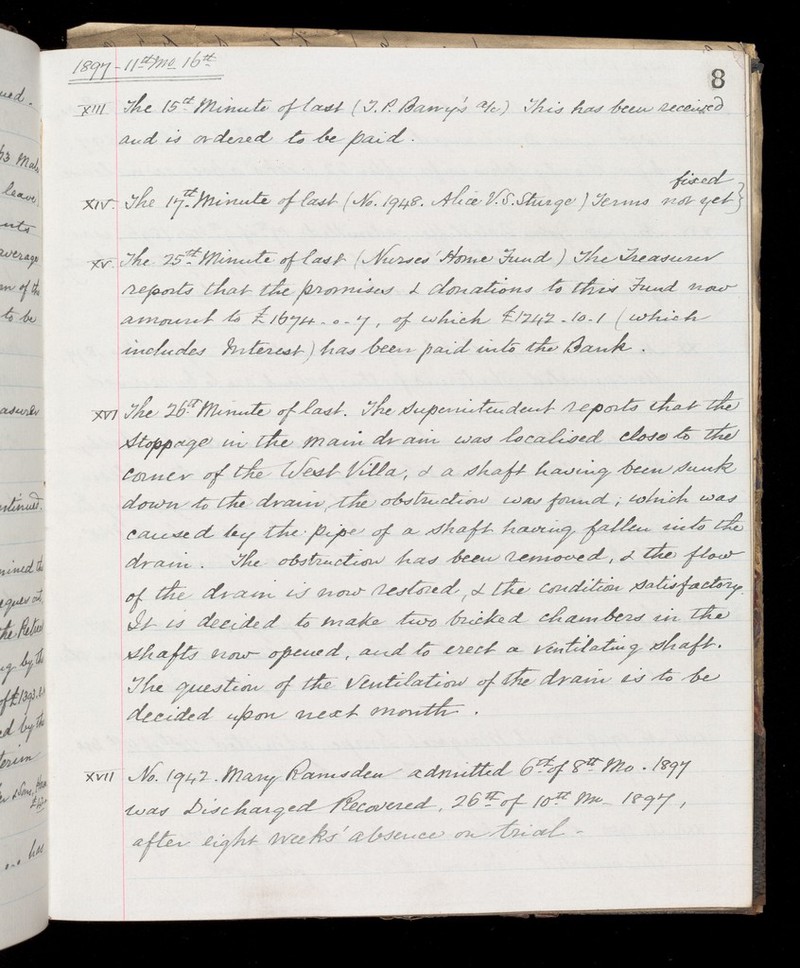 1897 - 11th Mo 16th
8
XIII The 15th Minute of last (J. P. Barry's a/c) This has been received
and is ordered to be paid.
fixed
XIV The 17th Minute of last (No. 1948. Alice V. S. Sturge) Terms not yet }
XV The 25th Minute of last (Nurses' Home Fund) The Treasurer
reports that the promises & donations to this Fund now
amount to £1674-0-7, of which £1242-10-1 (which
includes Interest) has been paid into the Bank.
XVI The 26th Minute of last. The Superintendent reports that the
Stoppage in the main drain was localised close to the
corner of the West Villa, & a shaft having been sunk
down to the drain, the obstruction was found; which was
caused by the pipe of a shaft having fallen into the
drain. The obstruction has been removed, & the flow
of the drain is now restored, & the condition satisfactory.
It is decided to make two bricked chambers in the
shafts now opened, and to erect a ventilating shaft.
The question of the ventilation of the drain is to be
decided upon next month.
XVII No. 1942. Mary Ramsden admitted 6th of 8th Mo. 1897
was Discharged Recovered, 26th of 10th Mo 1897,
after eight weeks' absence on trial.